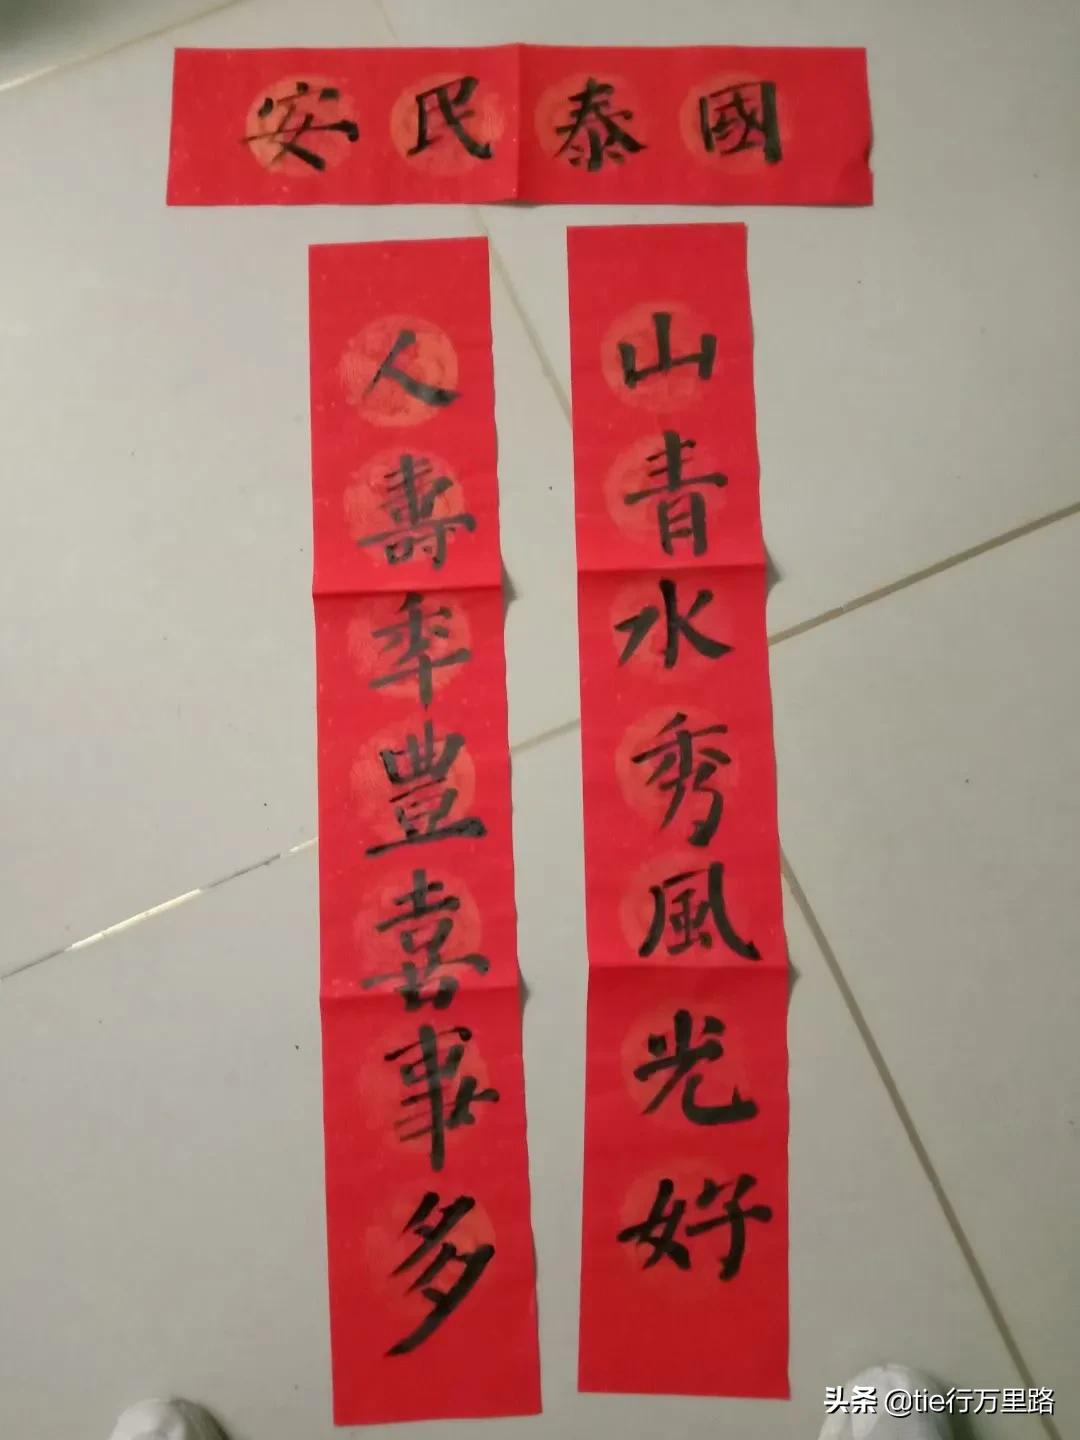 國泰民安
山青水秀風光好
人壽年豐喜事多
头条 @tie行万里路